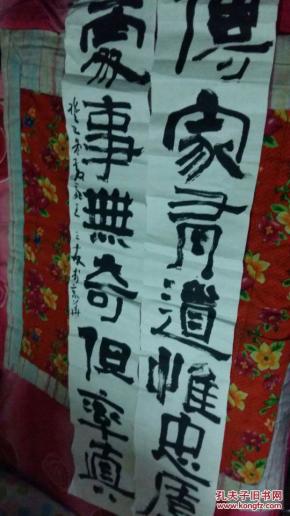 傳家有道惟忠厚
處事無奇但率真
孔夫子旧书网